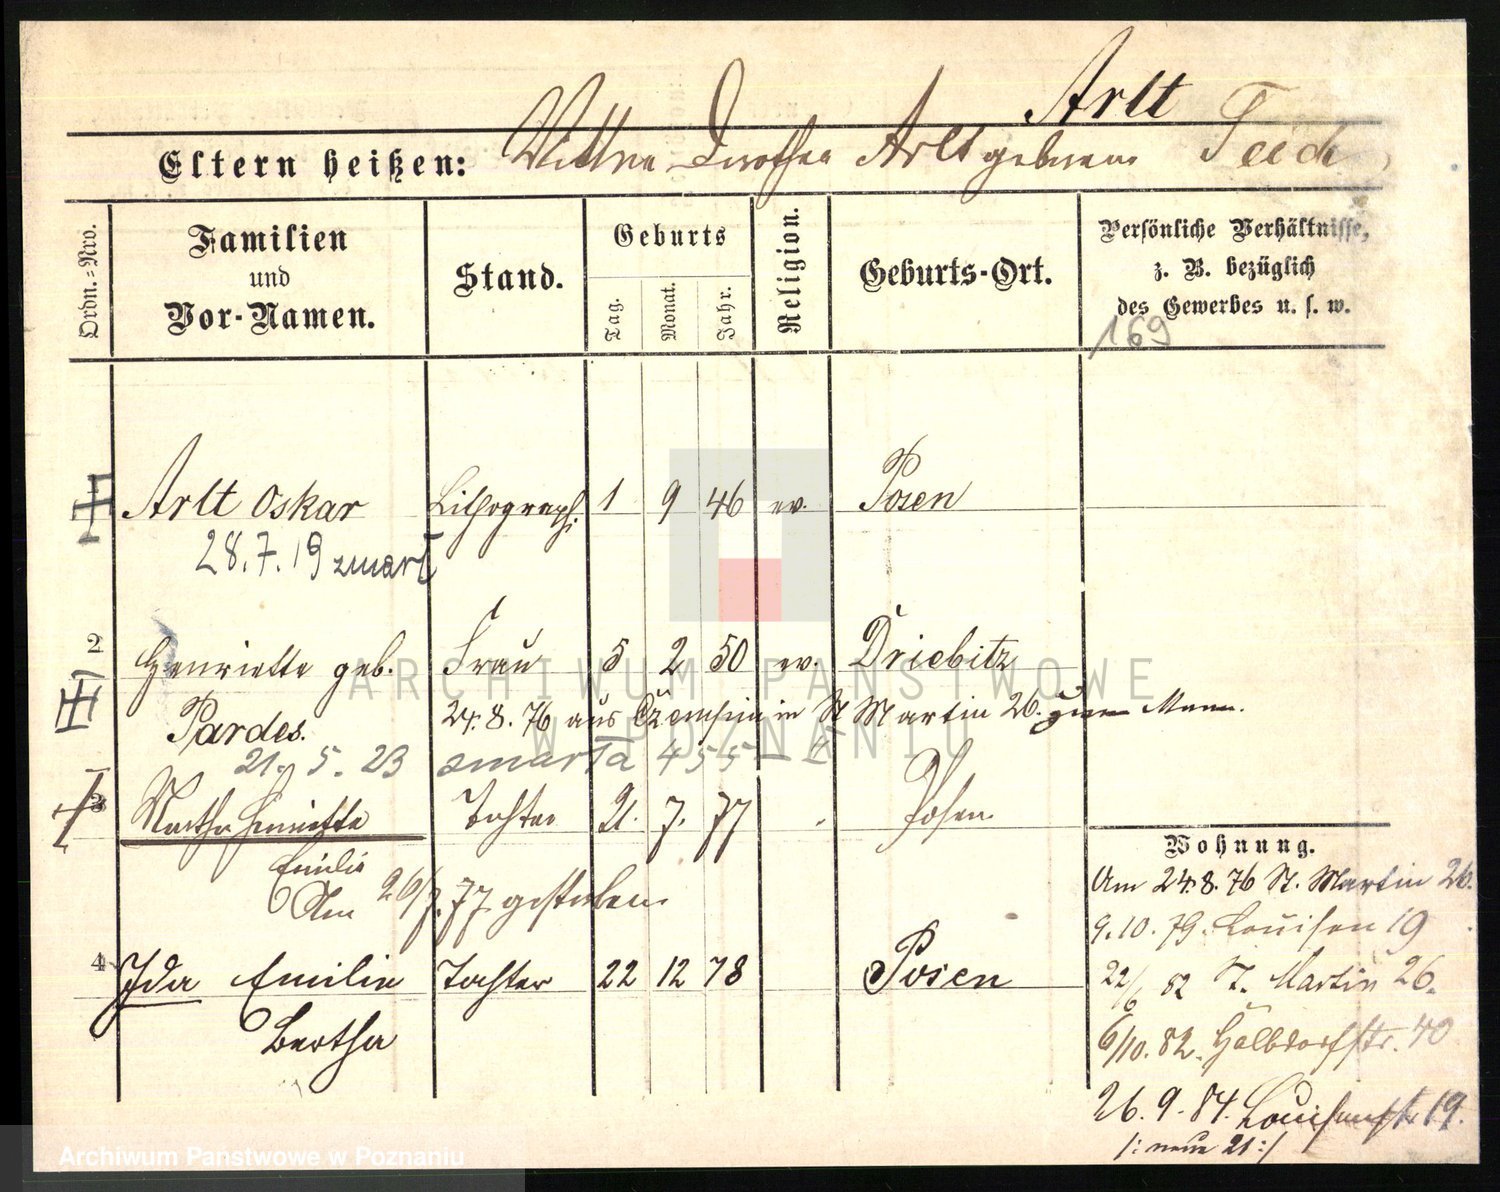 Arlt
Eltern heißen: Wittwe Dorothea Arlt geborene Teich
Ordn.=Nro.
Familien
und
Vor-Namen.
Stand.
Geburts
Tag.
Monat.
Jahr.
Religion.
Geburts-Ort.
Persönliche Verhältnisse,
z. B. bezüglich
des Gewerbes u. s. w.
169
Arlt Oskar Lithograph. 1 9 46 ev. Posen
28.7.19 zmarł
2 Henriette geb. Frau 5 2 50 ev. Driebitz
Pardes. 24.8.76 aus in St Martin 26. zum Mann.
21. 5. 23 zmarła 455
3 Martha Henriette Tochter 21. 7. 77 Posen
Emilie
Am 26/7.77 gestorben
4 Ida Emilie Tochter 22 12 78 Posen
Bertha
Wohnung.
Am 24.8.76 St. Martin 26.
9.10.79. Louisen 19
22/6 82 St. Martin 26.
6/10.82. Halbdorfstr. 40
26.9.84. Louisenstr 19.
/: neue 21 :/
ARCHIWUM PAŃSTWOWE
W POZNANIU
Archiwum Państwowe w Poznaniu